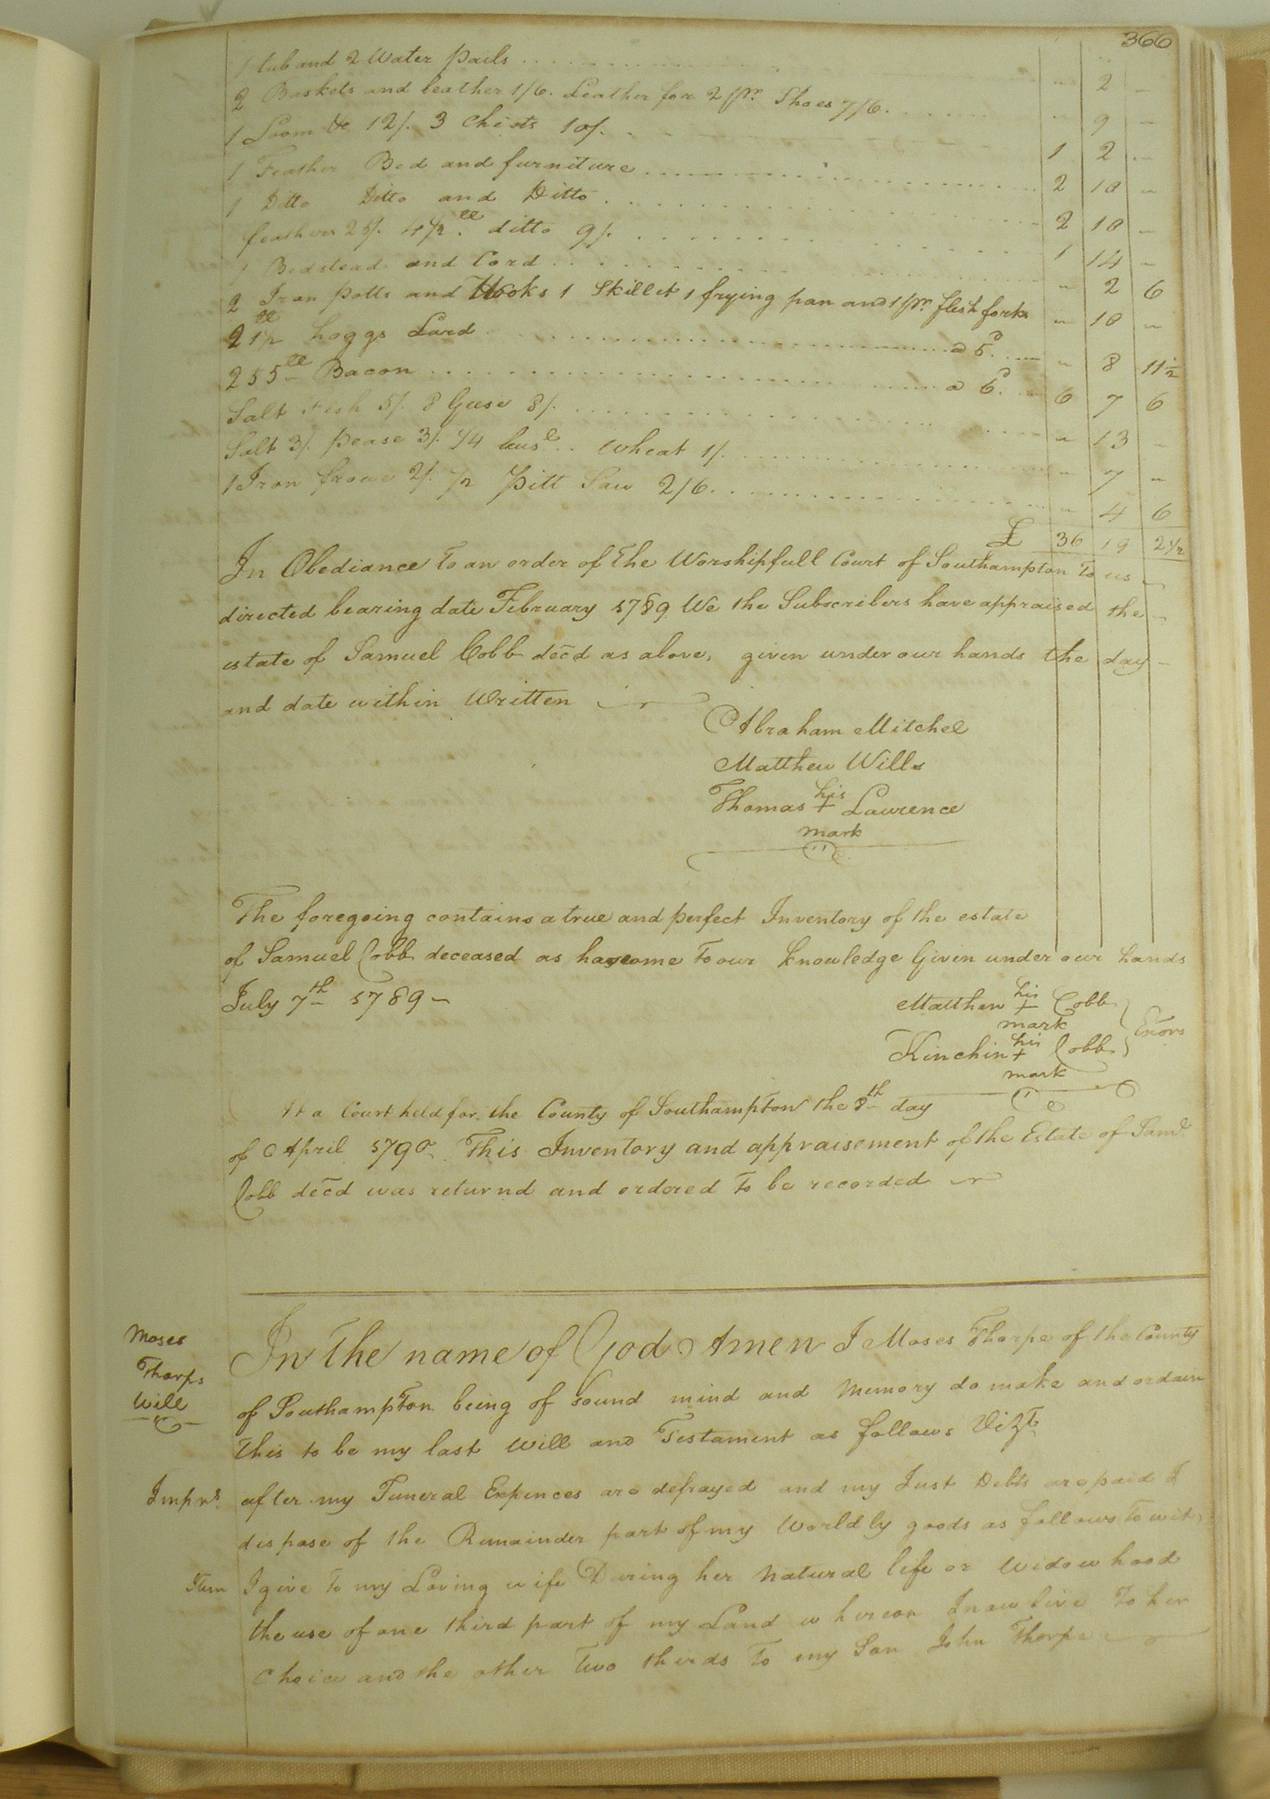 366
1 tub and 2 Water Pails " 2 "
2 Baskets and leather 1/6. Leather for 2 pr. Shoes 7/6. " 9 "
1 Loom &c 12/. 3 Chists 10/. 1 2 "
1 Feather Bed and furniture 2 10 "
1 Ditto Ditto and Ditto 2 10 "
feathers 25/. 4 1/2 ll ditto 9/. 1 14 "
1 Bedstead and Cord " 2 6
2 Iron potts and Hooks 1 Skillet 1 frying pan and 1 pr. flesh forks " 10 "
21 1/2 ll hoggs Lard a 5d. " 8 11 1/2
255 ll Bacon a 6d. 6 7 6
Salt Fish 5/. 8 Geese 8/. " 13 "
Salt 3/. Pease 3/. 1/4 busl. Wheat 1/. " 7 "
1 Iron frowe 2/. 1/2 Pitt Saw 2/6. " 4 6
£ 36 19 2 1/2
In Obediance to an order of the Worshipfull Court of Southampton to us
directed bearing date February 1789 We the Subscribers have appraised the
estate of Samuel Cobb decd as above, given under our hands the day
and date within Written
Abraham Mitchel
Matthew Wills
Thomas his + Lawrence
mark
The foregoing contains a true and perfect Inventory of the estate
of Samuel Cobb deceased as have come to our knowledge Given under our hands
July 7th 1789
Matthew his + Cobb
mark
Exors
Kinchin his + Cobb
mark
At a Court held for the County of Southampton the 8th day
of April 1790 This Inventory and appraisement of the Estate of Saml
Cobb decd was returnd and ordered to be recorded
Moses
Thorps
Will
In The name of God Amen I Moses Thorpe of the County
of Southampton being of sound mind and Memory do make and ordain
this to be my last Will and Testament as follows Vizt
Imprs. after my Funeral Expences are defrayed and my Just Debts are paid I
dispose of the Remainder part of my Worldly goods as follows to wit,
Item I give to my Loving wife During her Natural life or Widowhood
the use of one third part of my Land whereon I now live To her
Choice and the other Two thirds to my Son John Thorpe